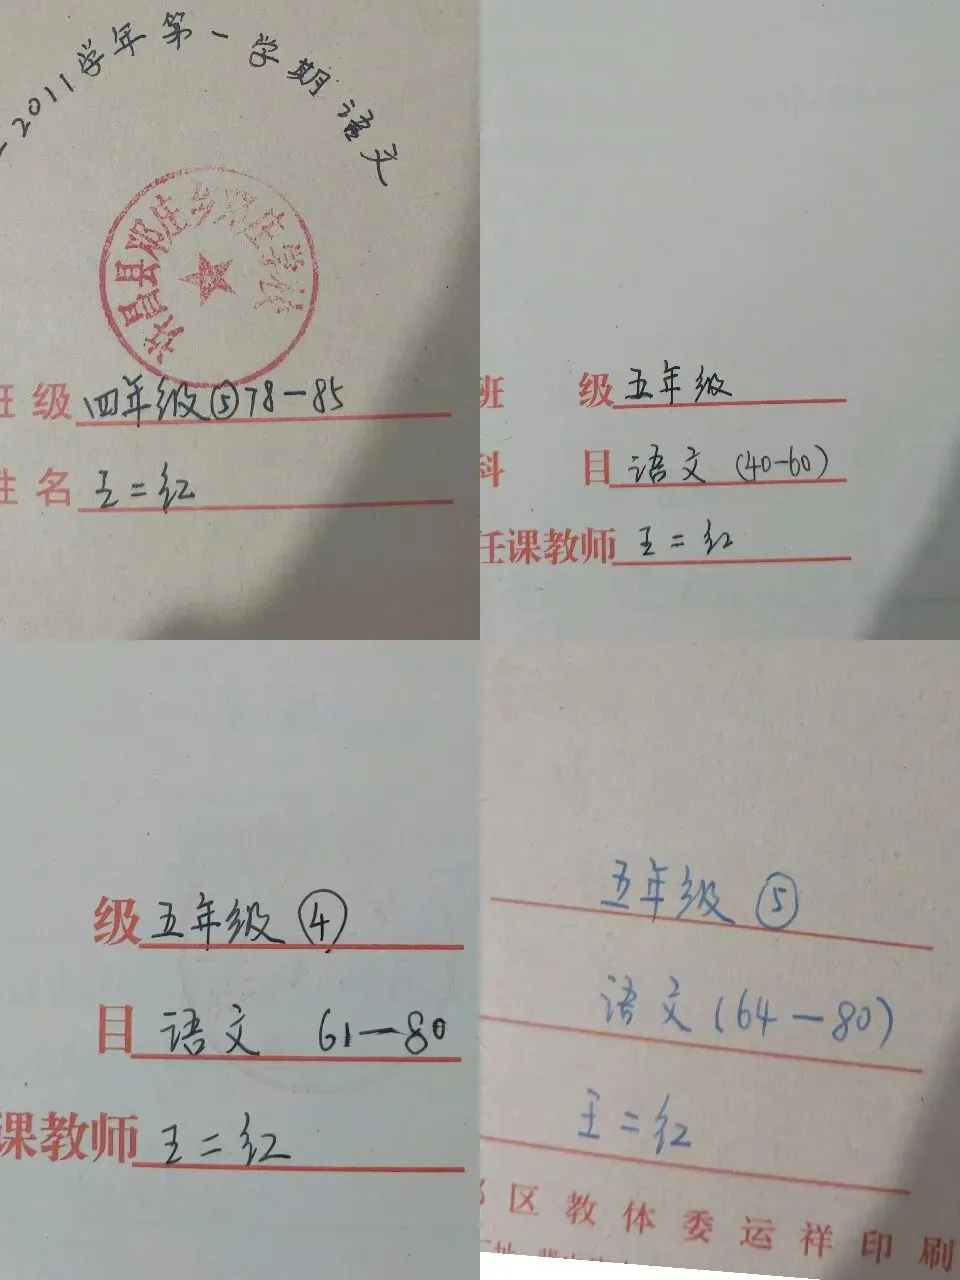 2011学年第一学期语文
许昌县邓庄乡邓庄学校
班级 四年级⑤78-85
姓名 王二红
班 级 五年级
科 目 语文 (40-60)
任课教师 王二红
级 五年级 ④
目 语文 61-80
课教师 王二红
五年级 ⑤
语文(64-80)
王二红
区教体委运祥印刷